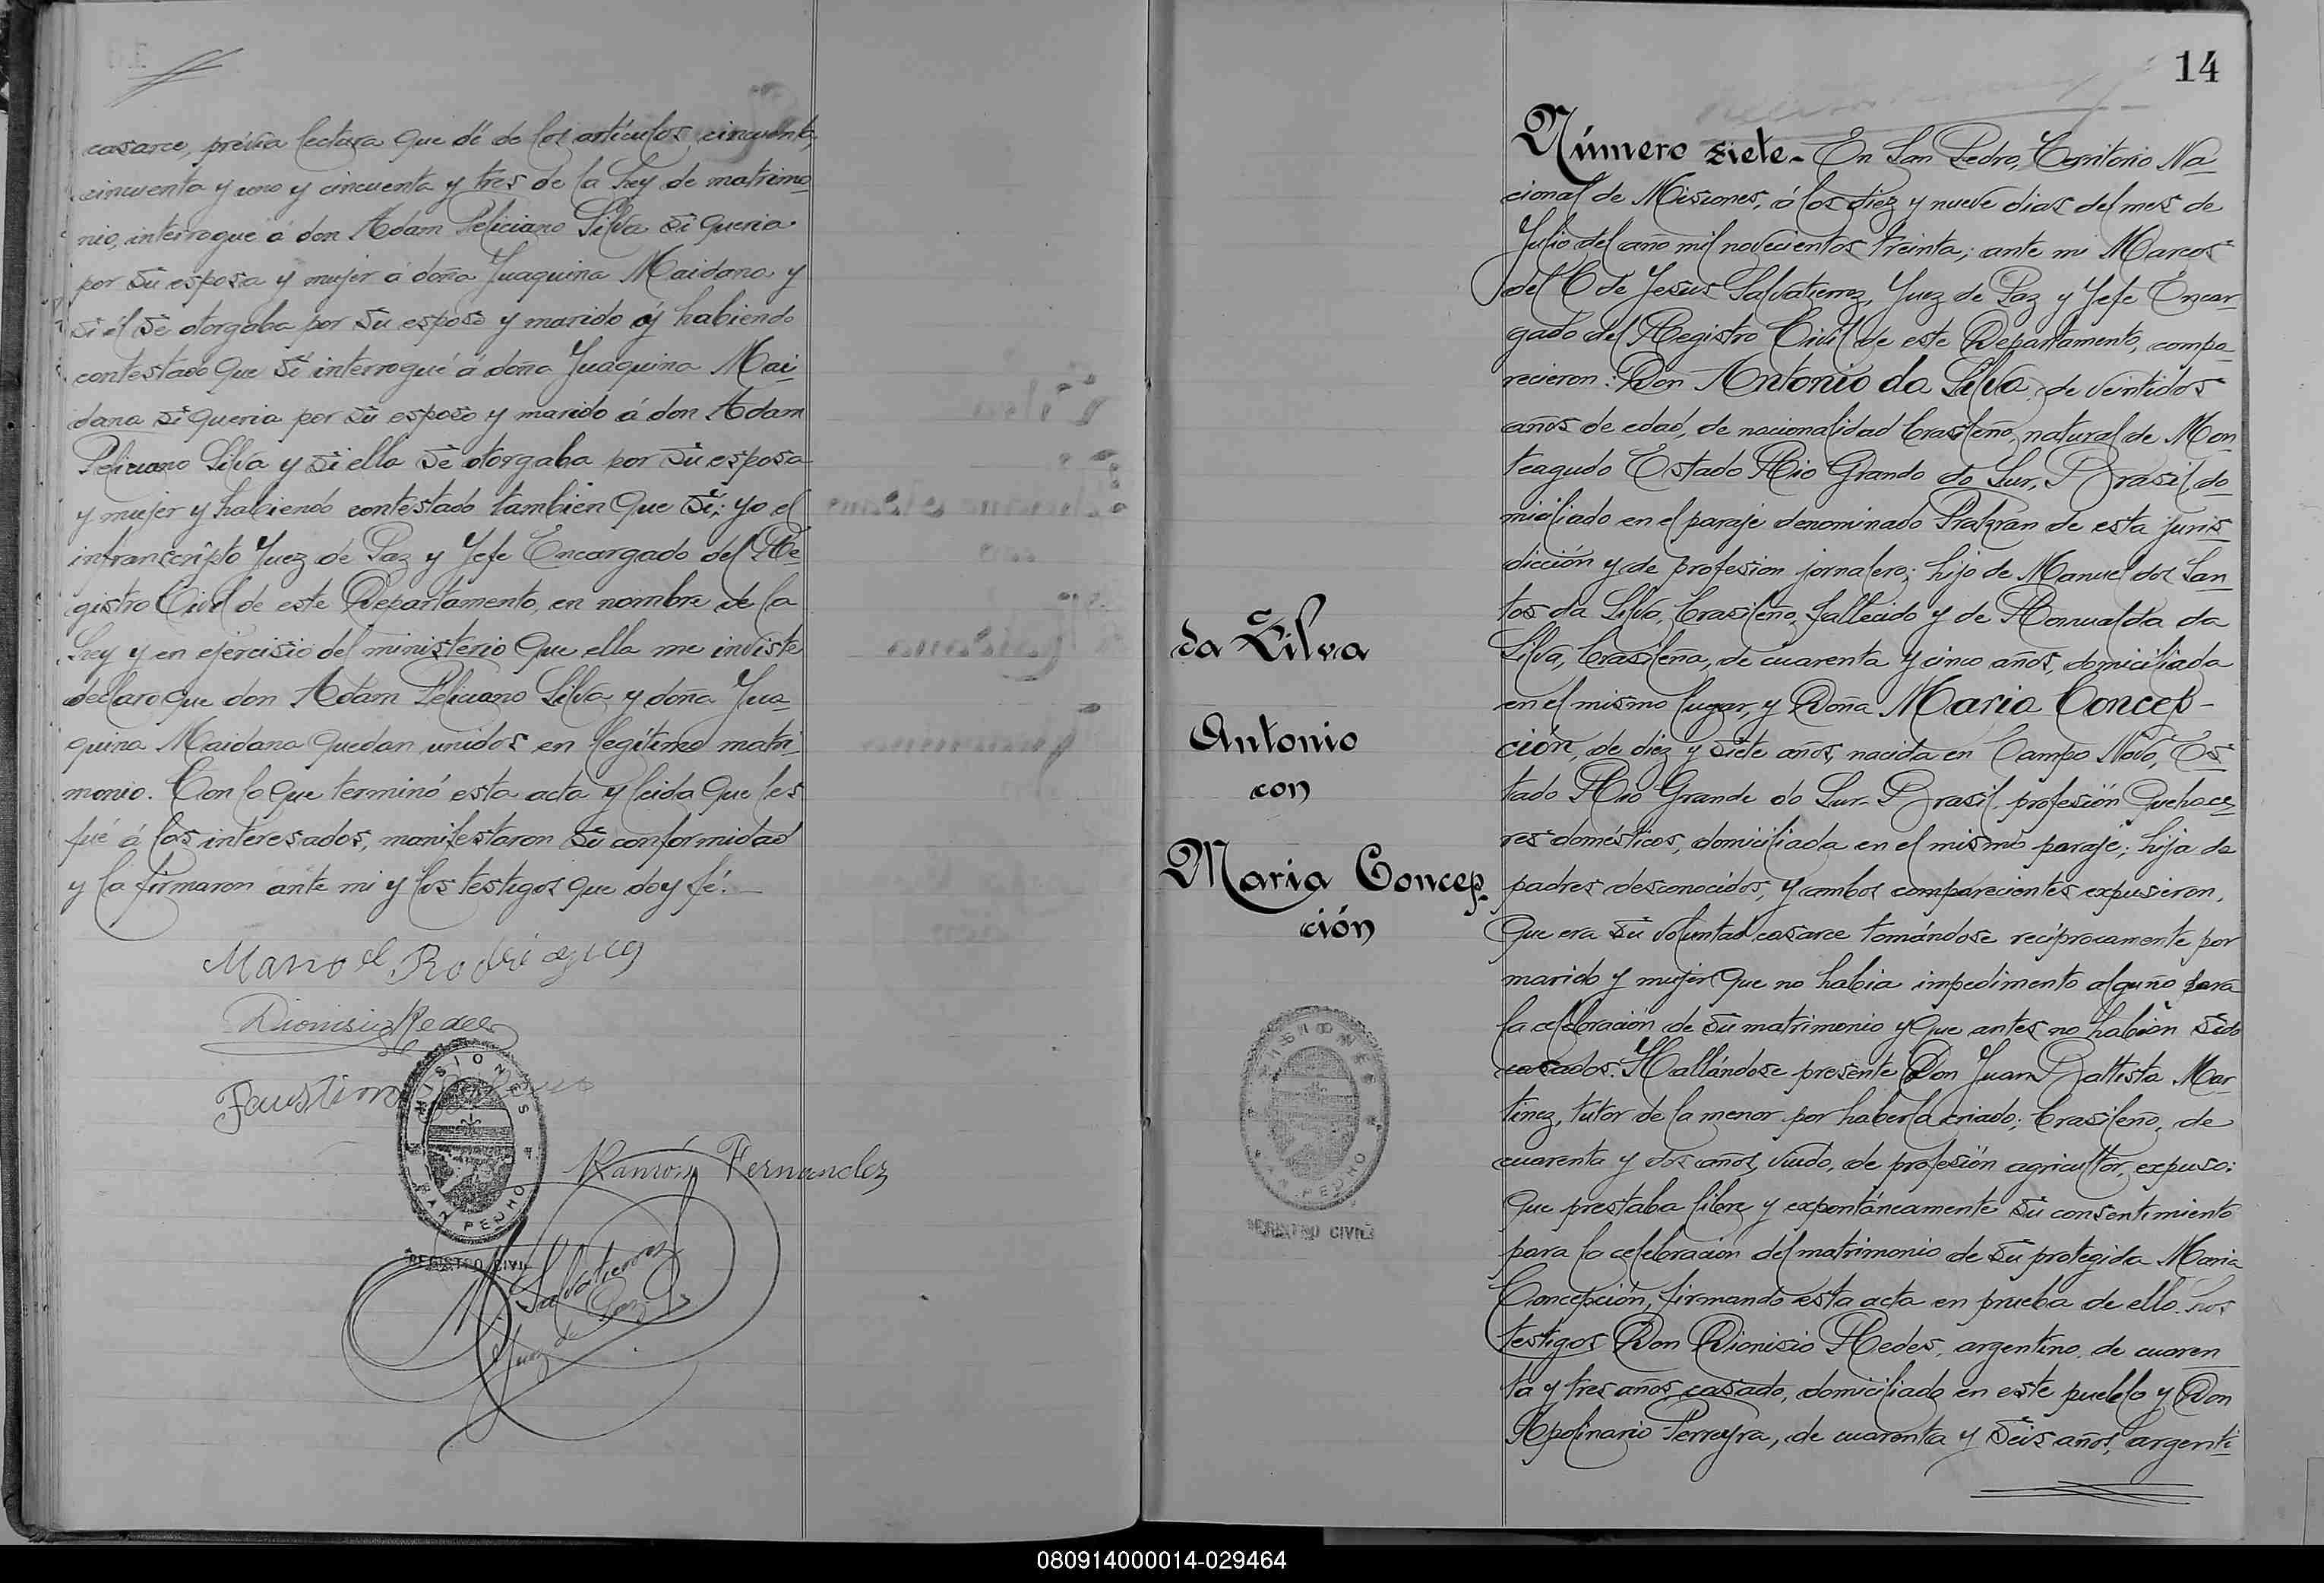 casarce, prévia lectura que dí de los artículos cincuenta,
cincuenta y uno y cincuenta y tres de la Ley de matrimo
nio, interrogue á don Adam Feliciano Silva si queria
por su esposa y mujer á doña Juaquina Maidana y
si él se otorgaba por su esposo y marido y habiendo
contestado que si interrogué á doña Juaquina Mai-
dana si queria por su esposo y marido á don Adam
Feliciano Silva y si ella se otorgaba por su esposa
y mujer y habiendo contestado tambien que sí; yo el
infranscripto Juez de Paz y Jefe Encargado del Re-
gistro Civil de este Departamento, en nombre de la
Ley y en ejercisio del ministerio que ella me inviste
declaro que don Adam Feliciano Silva y doña Jua-
quina Maidana quedan unidos en legítimo matri-
monio. Con lo que terminó esta acta y leida que les
fué á los interesados, manifestaron su conformidad
y la firmaron ante mi y los testigos que doy fé.-
Manoel Rodrigues
Dionisio Redes
Faustino
MISIONES
SAN PEDRO
REGISTRO CIVIL
Ramón Fernandez
M Salvatierra
Juez de Paz
da Silva
Antonio
con
Maria Concep-
ción
MISIONES
SAN PEDRO
REGISTRO CIVIL
14
Número siete.- En San Pedro, Territorio Na
cional de Misiones, á los diez y nueve dias del mes de
Julio del año mil novecientos treinta; ante mi Marcos
del C de Jesus Salvatierra, Juez de Paz y Jefe Encar-
gado del Registro Civil de este Departamento, compa
recieron: Don Antonio da Silva, de veintidos
años de edad, de nacionalidad brasileño, natural de Mon
teagudo Estado Rio Grando do Sur, Brasil, do
miciliado en el paraje denominado Pratzran de esta juris
dicción y de profesion jornalero; hijo de Manuel dos San
tos da Silva, brasileño, fallecido y de Romualda da
Silva, brasileña, de cuarenta y cinco años, domiciliada
en el mismo lugar, y Doña Maria Concep-
ción, de diez y siete años, nacida en Campo Novo, Es
tado Rio Grande do Sur- Brasil, profesión quehace
res domésticos, domiciliada en el mismo paraje; hija de
padres desconocidos, y ambos comparecientes expusieron.
Que era su voluntad casarce tomándose reciprocamente por
marido y mujer que no habia impedimento alguno para
la celebración de su matrimonio y que antes no habían sido
casados. Hallándose presente Don Juan Battista Mar
tinez, tutor de la menor por haberla criado; brasileño, de
cuarenta y dos años, viudo, de profesión agricultor, expuso:
Que prestaba libre y expontáneamente su consentimiento
para la celebracion del matrimonio de su protegida Maria
Concepción, firmando esta acta en prueba de ello. Los
testigos Don Dionisio Redes, argentino, de cuaren
ta y tres años, casado, domiciliado en este pueblo y Don
Apolinario Ferreyra, de cuarenta y seis años, argenti
080914000014-029464